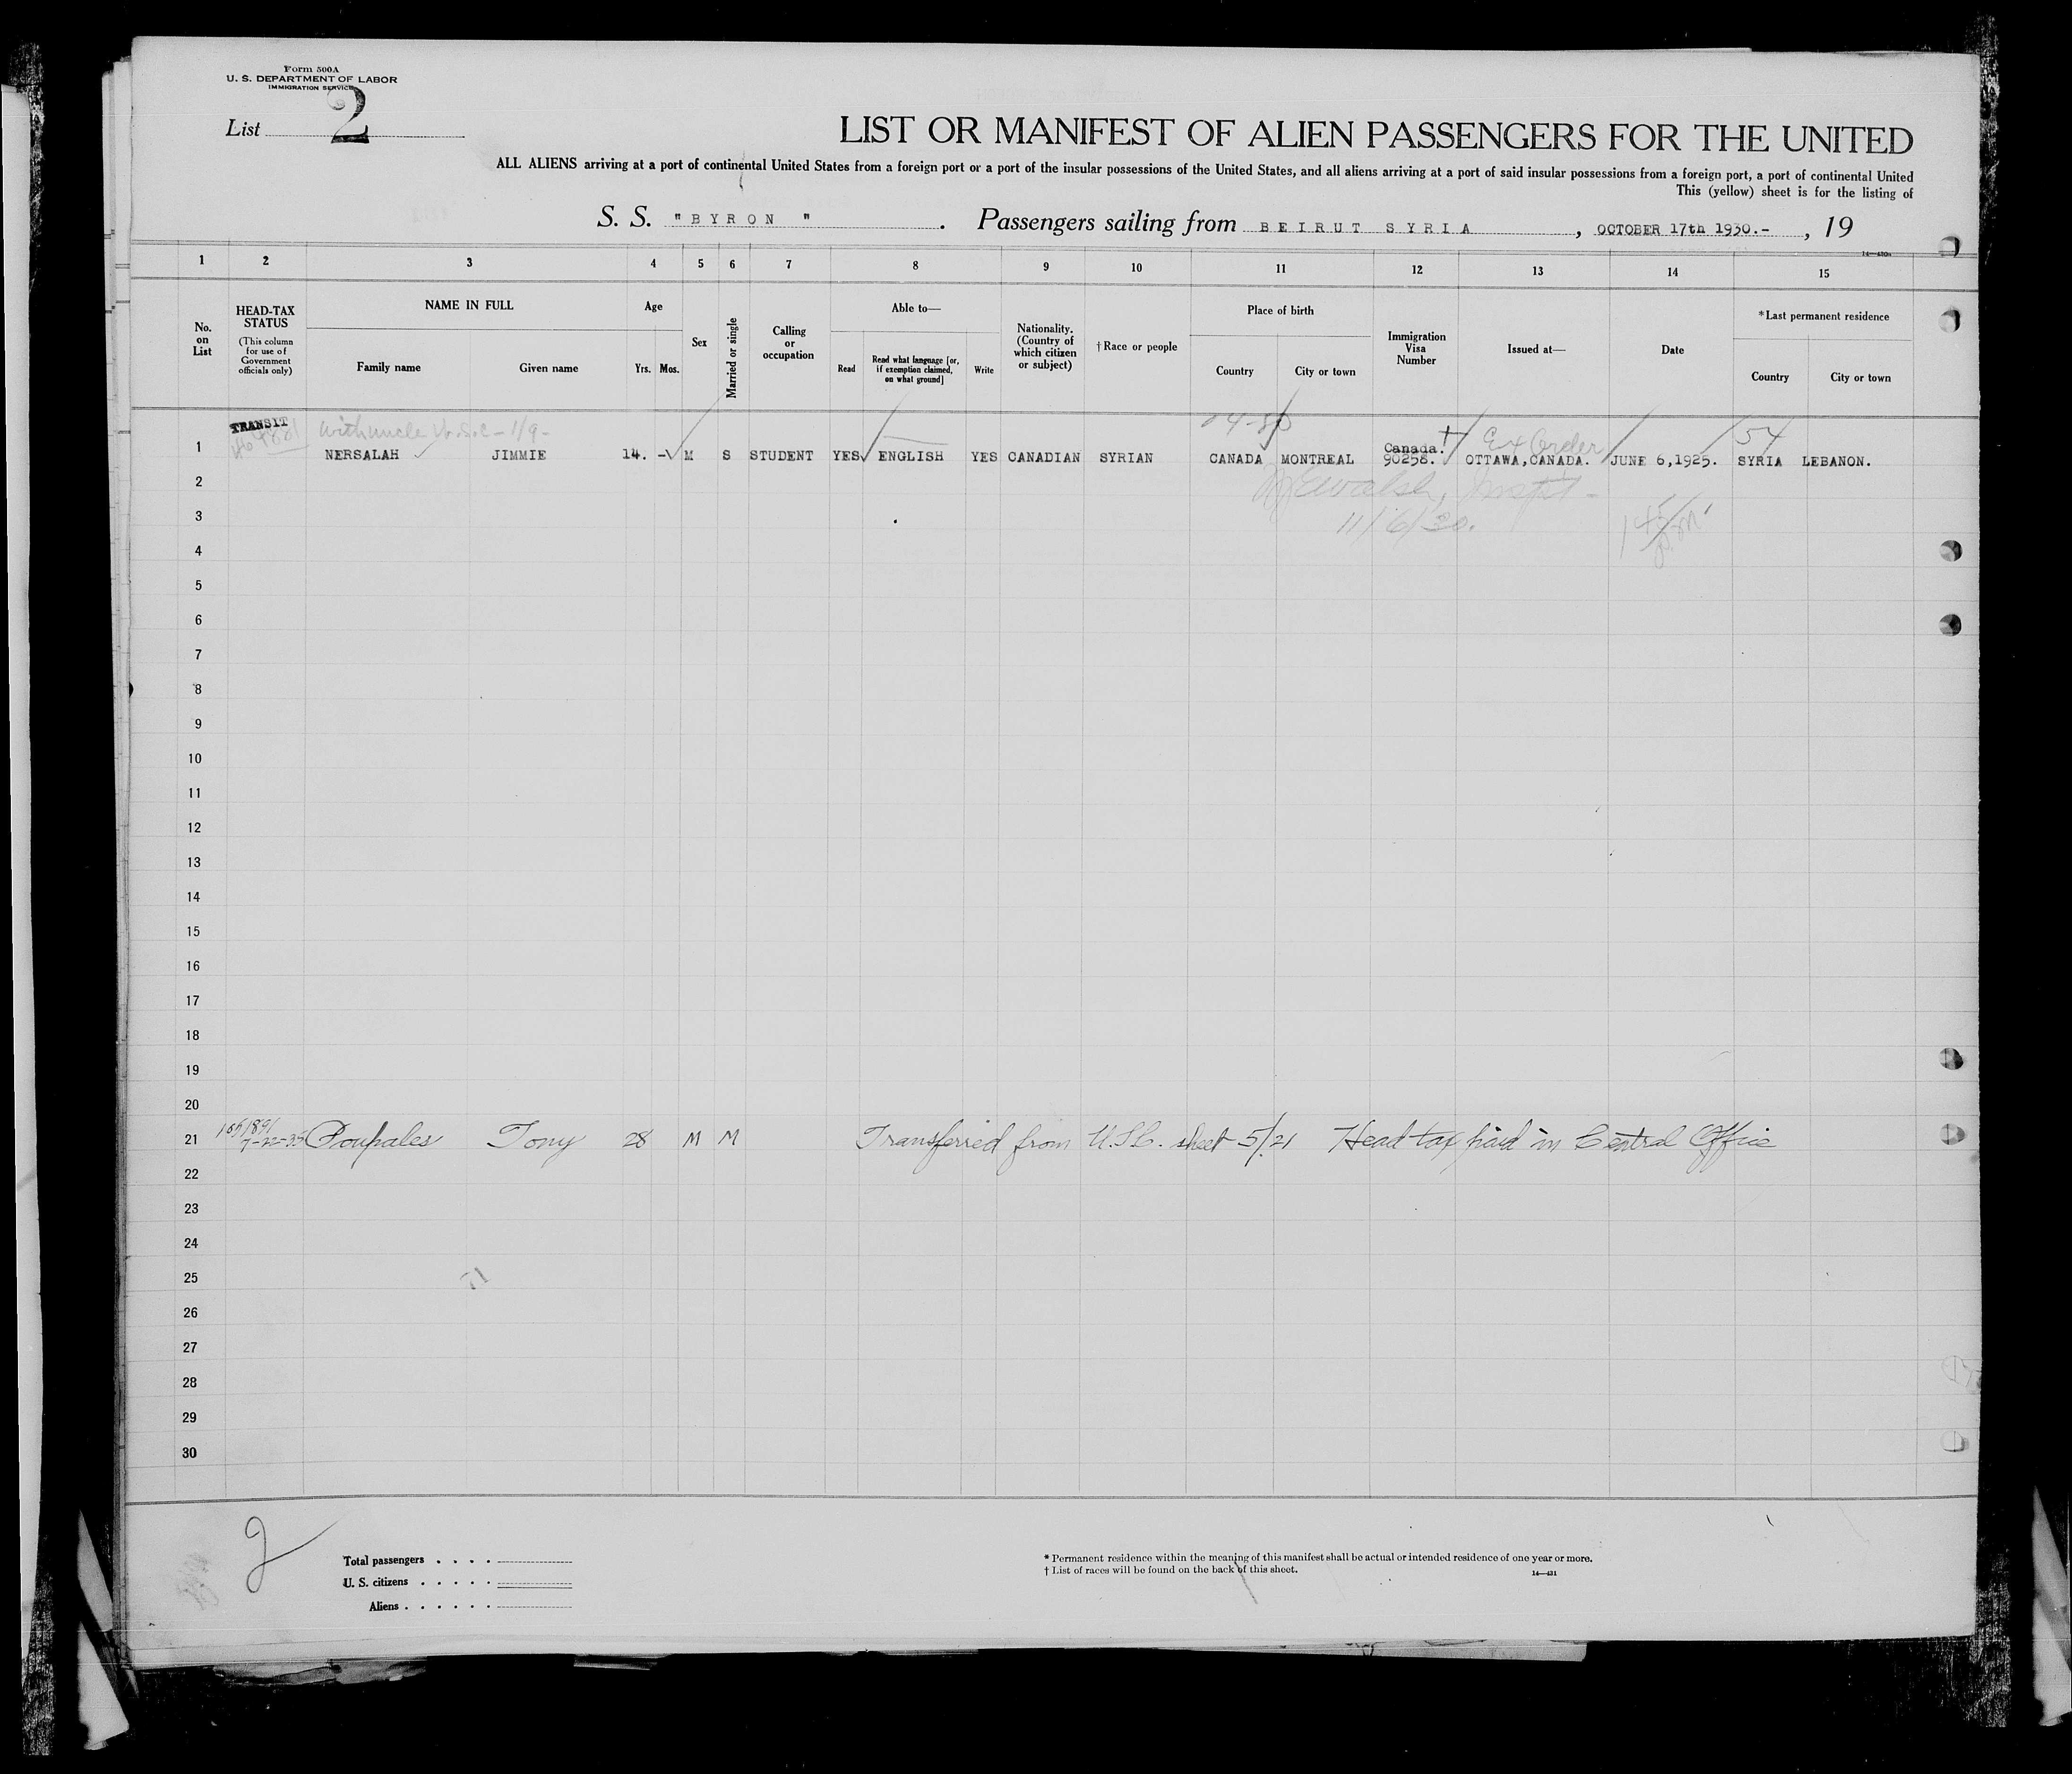 Form 500A
U. S. DEPARTMENT OF LABOR
IMMIGRATION SERVICE
List 2
LIST OR MANIFEST OF ALIEN PASSENGERS FOR THE UNITED
ALL ALIENS arriving at a port of continental United States from a foreign port or a port of the insular possessions of the United States, and all aliens arriving at a port of said insular possessions from a foreign port, a port of continental United
This (yellow) sheet is for the listing of
S. S. "BYRON" . Passengers sailing from BEIRUT SYRIA , OCTOBER 17th 1930.- , 19
1 2 3 4 5 6 7 8 9 10 11 12 13 14 15
No. on List
HEAD-TAX STATUS
(This column for use of Government officials only)
NAME IN FULL
Family name Given name
Age
Yrs. Mos.
Sex
Married or single
Calling or occupation
Able to—
Read
Read what language [or, if exemption claimed, on what ground]
Write
Nationality. (Country of which citizen or subject)
† Race or people
Place of birth
Country City or town
Immigration Visa Number
Issued at—
Date
* Last permanent residence
Country City or town
TRANSIT
with uncle U.S.C - 1/9 -
Ex Order
54
1 NERSALAH JIMMIE 14. - M S STUDENT YES ENGLISH YES CANADIAN SYRIAN CANADA MONTREAL Canada. 90258. OTTAWA, CANADA. JUNE 6, 1925. SYRIA LEBANON.
2
11/6/30.
3
4
5
6
7
8
9
10
11
12
13
14
15
16
17
18
19
20
7-22-35
21 Poupales Tony 28 M M Transferred from U.S.C. sheet 5/21 Head tax paid in Central Office
22
23
24
25
26
27
28
29
30
2
Total passengers
U. S. citizens
Aliens
* Permanent residence within the meaning of this manifest shall be actual or intended residence of one year or more.
† List of races will be found on the back of this sheet.
14—431